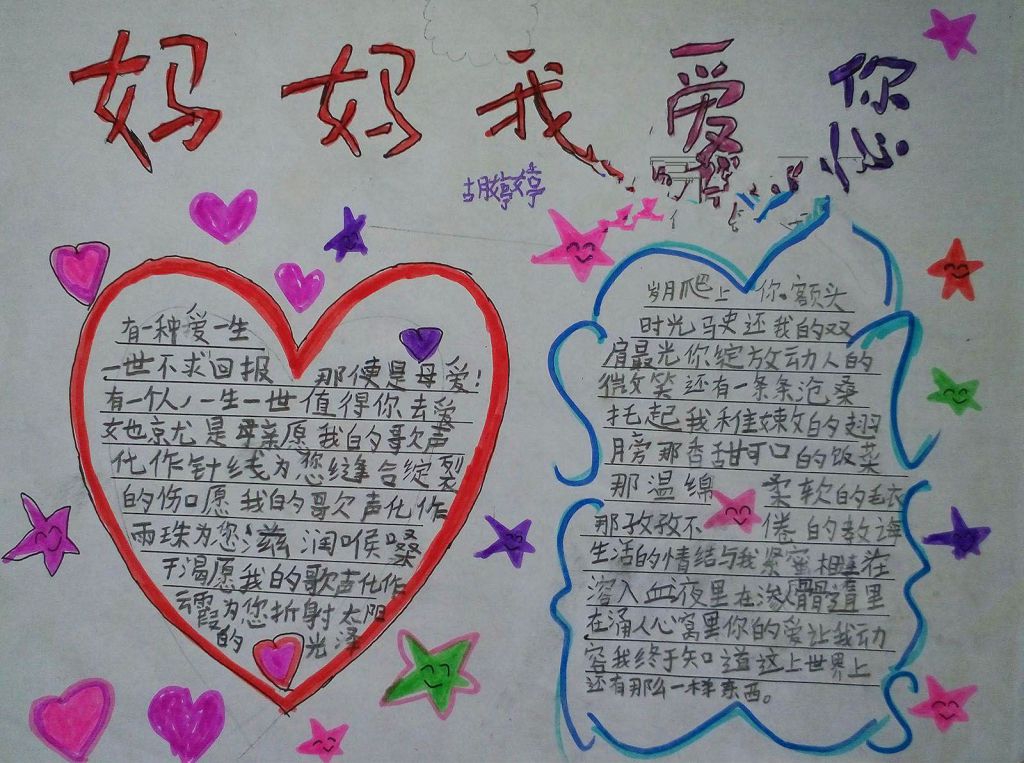 妈妈我爱你
胡婷婷
有一种爱一生
一世不求回报 那便是母爱!
有一个人,一生一世值得你去爱
她尤是母亲愿我的歌声
化作针线为您缝合绽裂
的伤口愿我的歌声化作
雨珠为您滋润喉嗓
干渴愿我的歌声化作
云霞为您折射太阳
的光泽
岁月爬上你额头
时光马史还我的双
肩最光你绽放动人的
微笑还有一条条沧桑
托起我稚嫩的翅
膀那香甜可口的饭菜
那温绵柔软的毛衣
那孜孜不倦的教诲
生活的情结与我紧密相连在
溶入血液里在渗入骨髓里
在涌人心窝里你的爱让我动
容我终于知道这上世界上
还有那么一样东西。